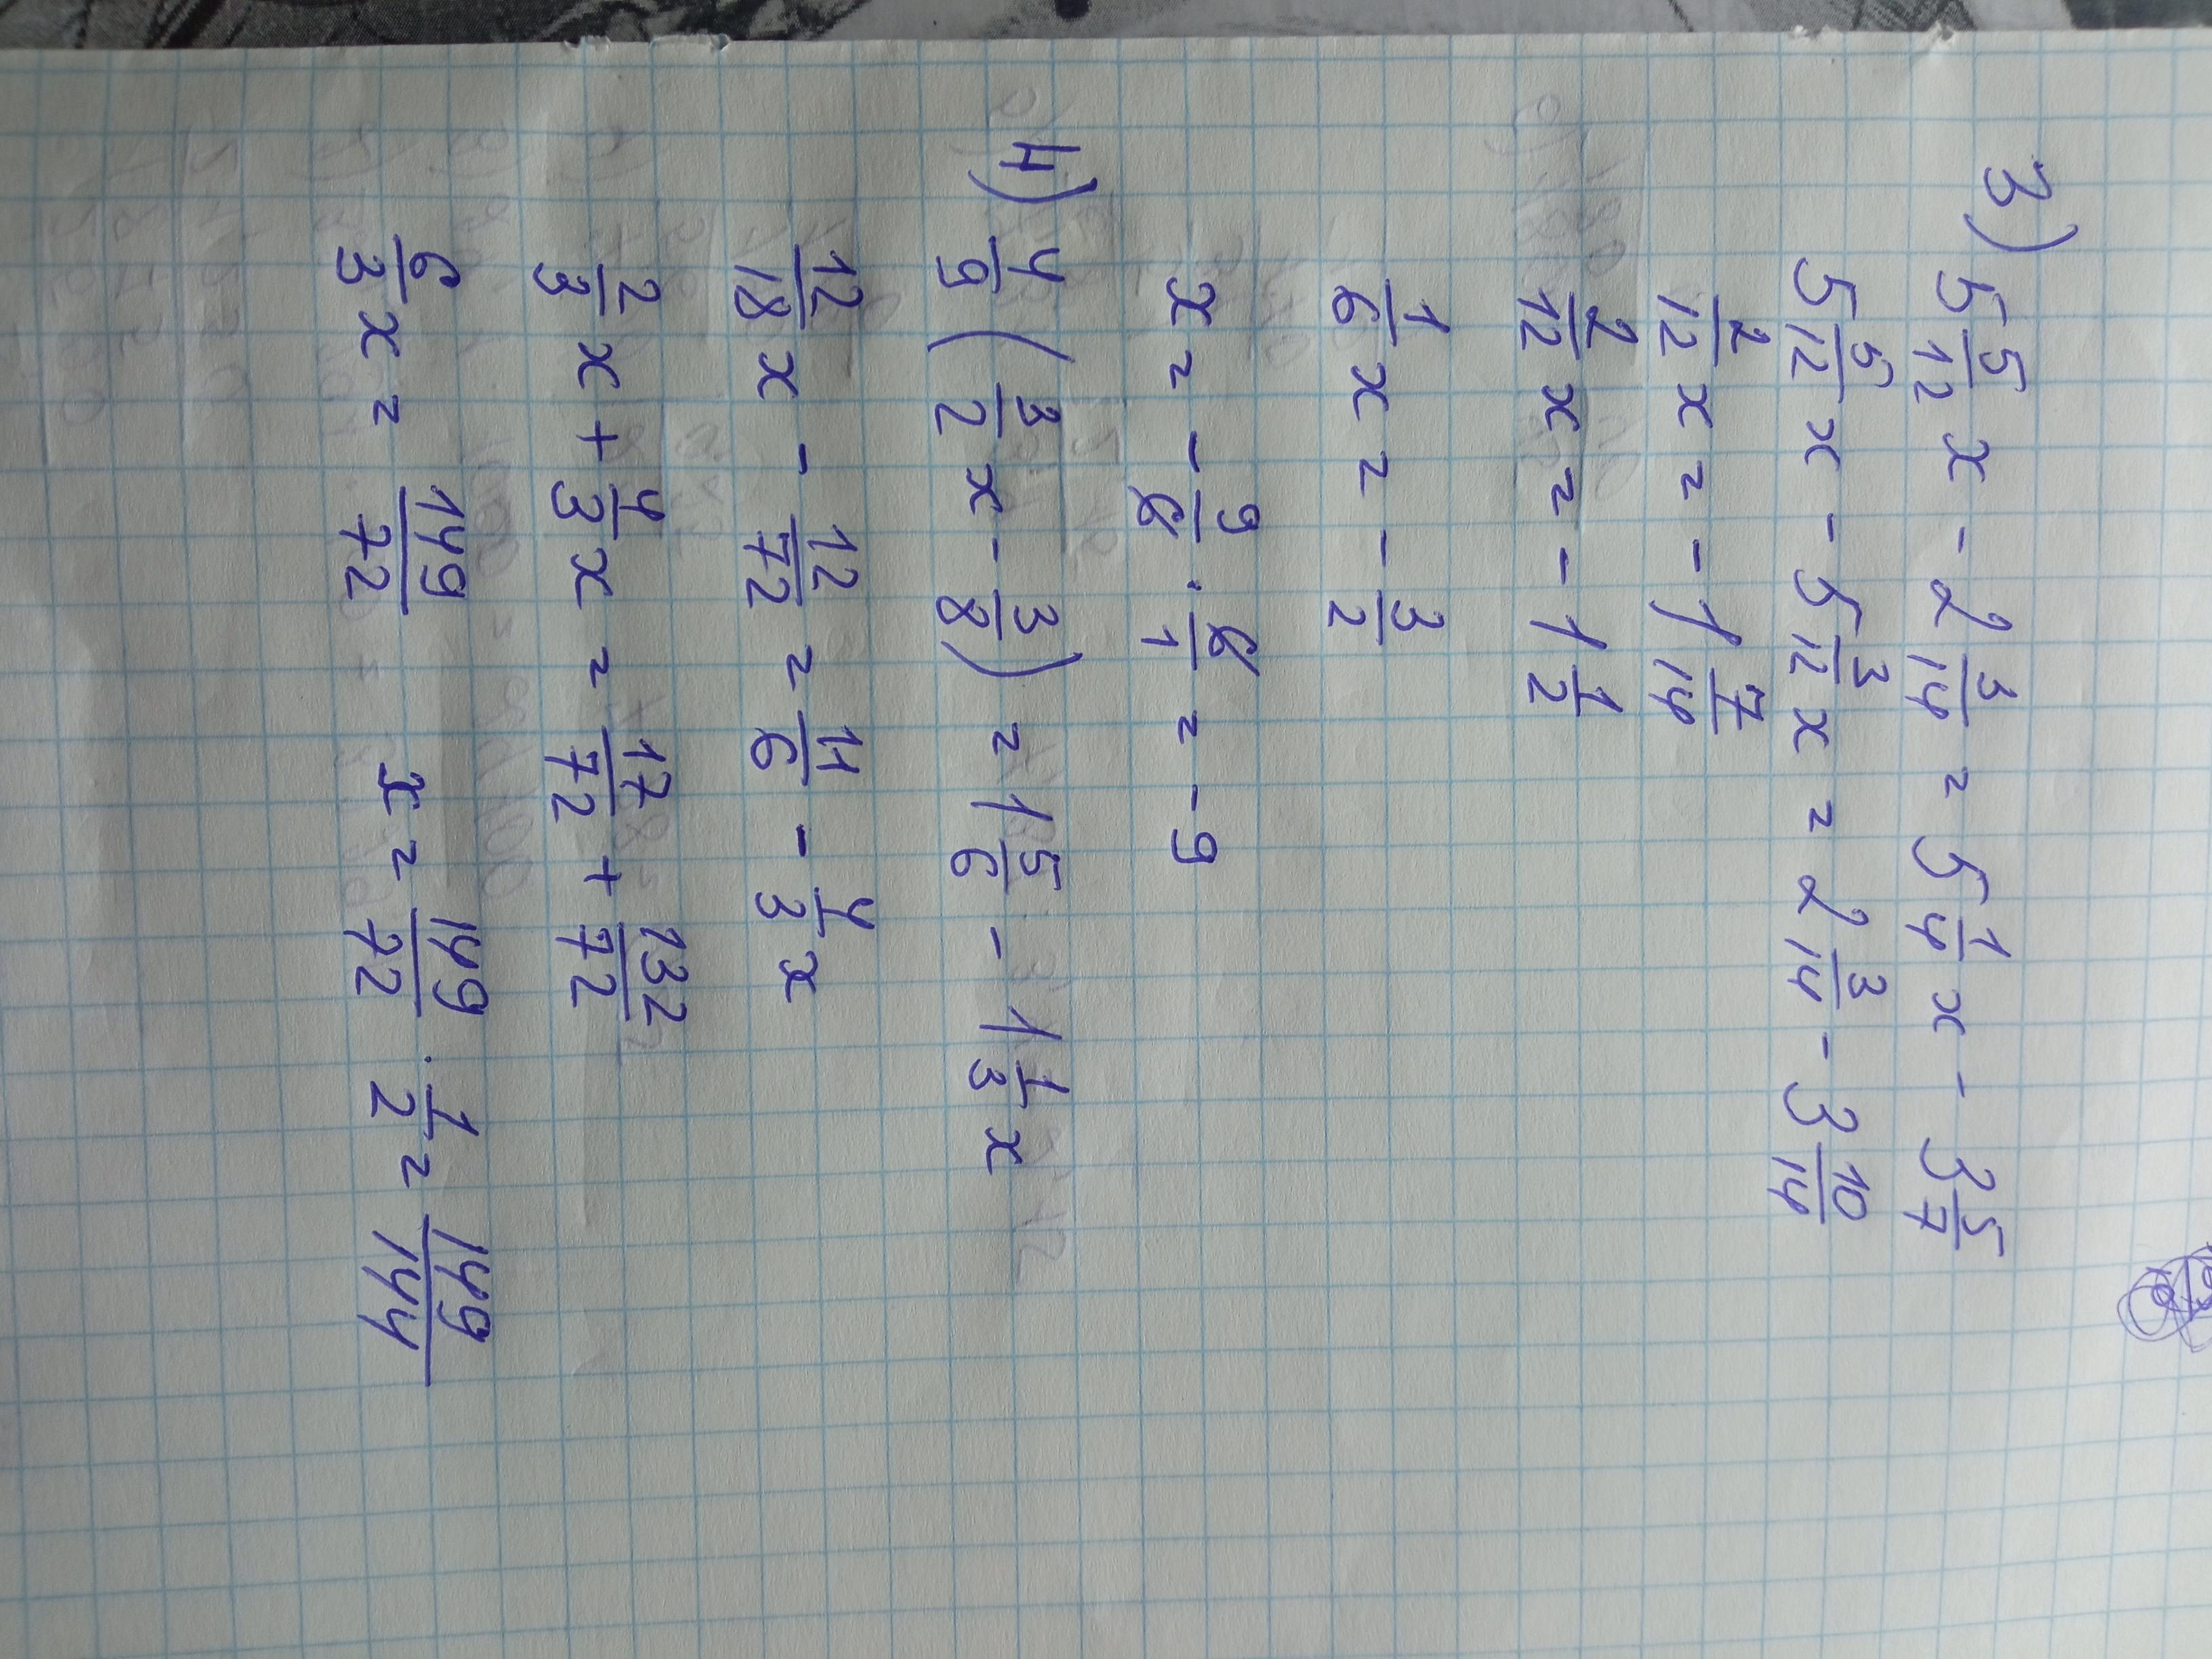 3) 5 5/12 x - 2 3/14 = 5 1/4 x - 3 5/7
5 5/12 x - 5 3/12 x = 2 3/14 - 3 10/14
2/12 x = - 1 7/14
2/12 x = - 1 1/2
1/6 x = - 3/2
x = - 9/6 · 6/1 = - 9
4) 4/9 ( 3/2 x - 3/8 ) = 1 5/6 - 1 1/3 x
12/18 x - 12/72 = 11/6 - 4/3 x
2/3 x + 4/3 x = 17/72 + 132/72
6/3 x = 149/72 x = 149/72 · 1/2 = 149/144